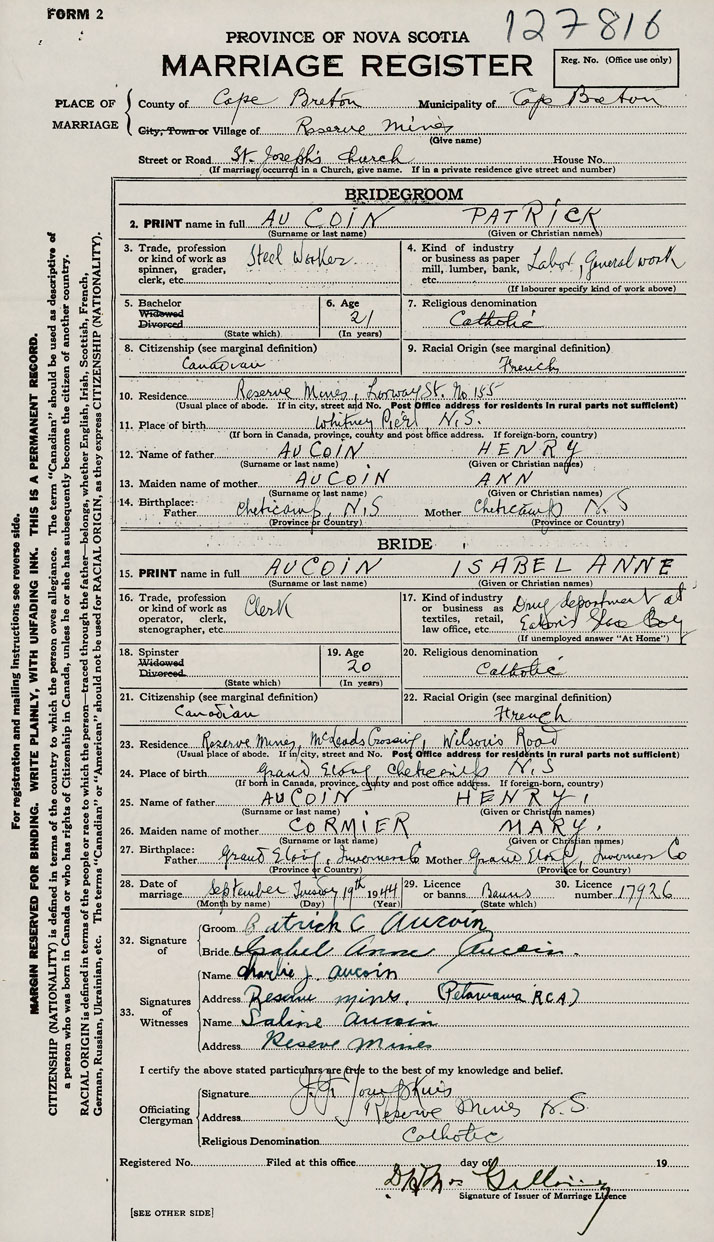 FORM 2
127816
PROVINCE OF NOVA SCOTIA
MARRIAGE REGISTER
Reg. No. (Office use only)
PLACE OF MARRIAGE
County of Cape Breton Municipality of Cape Breton
City, Town or Village of Reserve Mines
(Give name)
Street or Road St. Joseph's Church House No.
(If marriage occurred in a Church, give name. If in a private residence give street and number)
BRIDEGROOM
2. PRINT name in full AUCOIN PATRICK
(Surname or last name) (Given or Christian names)
3. Trade, profession or kind of work as spinner, grader, clerk, etc. Steel Worker
4. Kind of industry or business as paper mill, lumber, bank, etc. Labor, General work
(If labourer specify kind of work above)
5. Bachelor Widowed Divorced (State which)
6. Age 21 (In years)
7. Religious denomination Catholic
8. Citizenship (see marginal definition) Canadian
9. Racial Origin (see marginal definition) French
10. Residence Reserve Mines, St. No 155
(Usual place of abode. If in city, street and No. Post Office address for residents in rural parts not sufficient)
11. Place of birth Whitney Pier N.S.
(If born in Canada, province, county and post office address. If foreign-born, country)
12. Name of father AUCOIN HENRY
(Surname or last name) (Given or Christian names)
13. Maiden name of mother AUCOIN ANN
(Surname or last name) (Given or Christian names)
14. Birthplace: Father Cheticamp, N.S Mother Cheticamp N.S
(Province or Country) (Province or Country)
BRIDE
15. PRINT name in full AUCOIN ISABEL ANNE
(Surname or last name) (Given or Christian names)
16. Trade, profession or kind of work as operator, clerk, stenographer, etc. Clerk
17. Kind of industry or business as textiles, retail, law office, etc. Drug department at Eaton's Glace Bay
(If unemployed answer "At Home")
18. Spinster Widowed Divorced (State which)
19. Age 20 (In years)
20. Religious denomination Catholic
21. Citizenship (see marginal definition) Canadian
22. Racial Origin (see marginal definition) French
23. Residence Reserve Mines, McLeods Crossing, Wilson's Road
(Usual place of abode. If in city, street and No. Post Office address for residents in rural parts not sufficient)
24. Place of birth Grand Etang, N.S
(If born in Canada, province, county and post office address. If foreign-born, country)
25. Name of father AUCOIN HENRY
(Surname or last name) (Given or Christian names)
26. Maiden name of mother CORMIER MARY
(Surname or last name) (Given or Christian names)
27. Birthplace: Father Grand Etang, Inverness Co Mother Grand Etang, Inverness Co
(Province or Country) (Province or Country)
28. Date of marriage September Tuesday 19th 1944
(Month by name) (Day) (Year)
29. Licence or banns Banns (State which)
30. Licence number 17926
32. Signature of
Groom Patrick C Aucoin
Bride Isabel Anne Aucoin.
33. Signatures of Witnesses
Name Charlie J. Aucoin
Address Reserve mines. (Petawawa R.C.A.)
Name Saline Aucoin
Address Reseve Mines
I certify the above stated particulars are true to the best of my knowledge and belief.
Officiating Clergyman
Signature
Address Reserve Mines N.S.
Religious Denomination Catholic
Registered No. Filed at this office day of 19
Signature of Issuer of Marriage Licence
[SEE OTHER SIDE]
For registration and mailing instructions see reverse side.
MARGIN RESERVED FOR BINDING. WRITE PLAINLY, WITH UNFADING INK. THIS IS A PERMANENT RECORD.
CITIZENSHIP (NATIONALITY) is defined in terms of the country to which the person owes allegiance. The term "Canadian" should be used as descriptive of
a person who was born in Canada or who has rights of Citizenship in Canada, unless he or she has subsequently become the citizen of another country.
RACIAL ORIGIN is defined in terms of the people or race to which the person—traced through the father—belongs, whether English, Irish, Scottish, French,
German, Russian, Ukrainian, etc. The terms "Canadian" or "American" should not be used for RACIAL ORIGIN, as they express CITIZENSHIP (NATIONALITY).